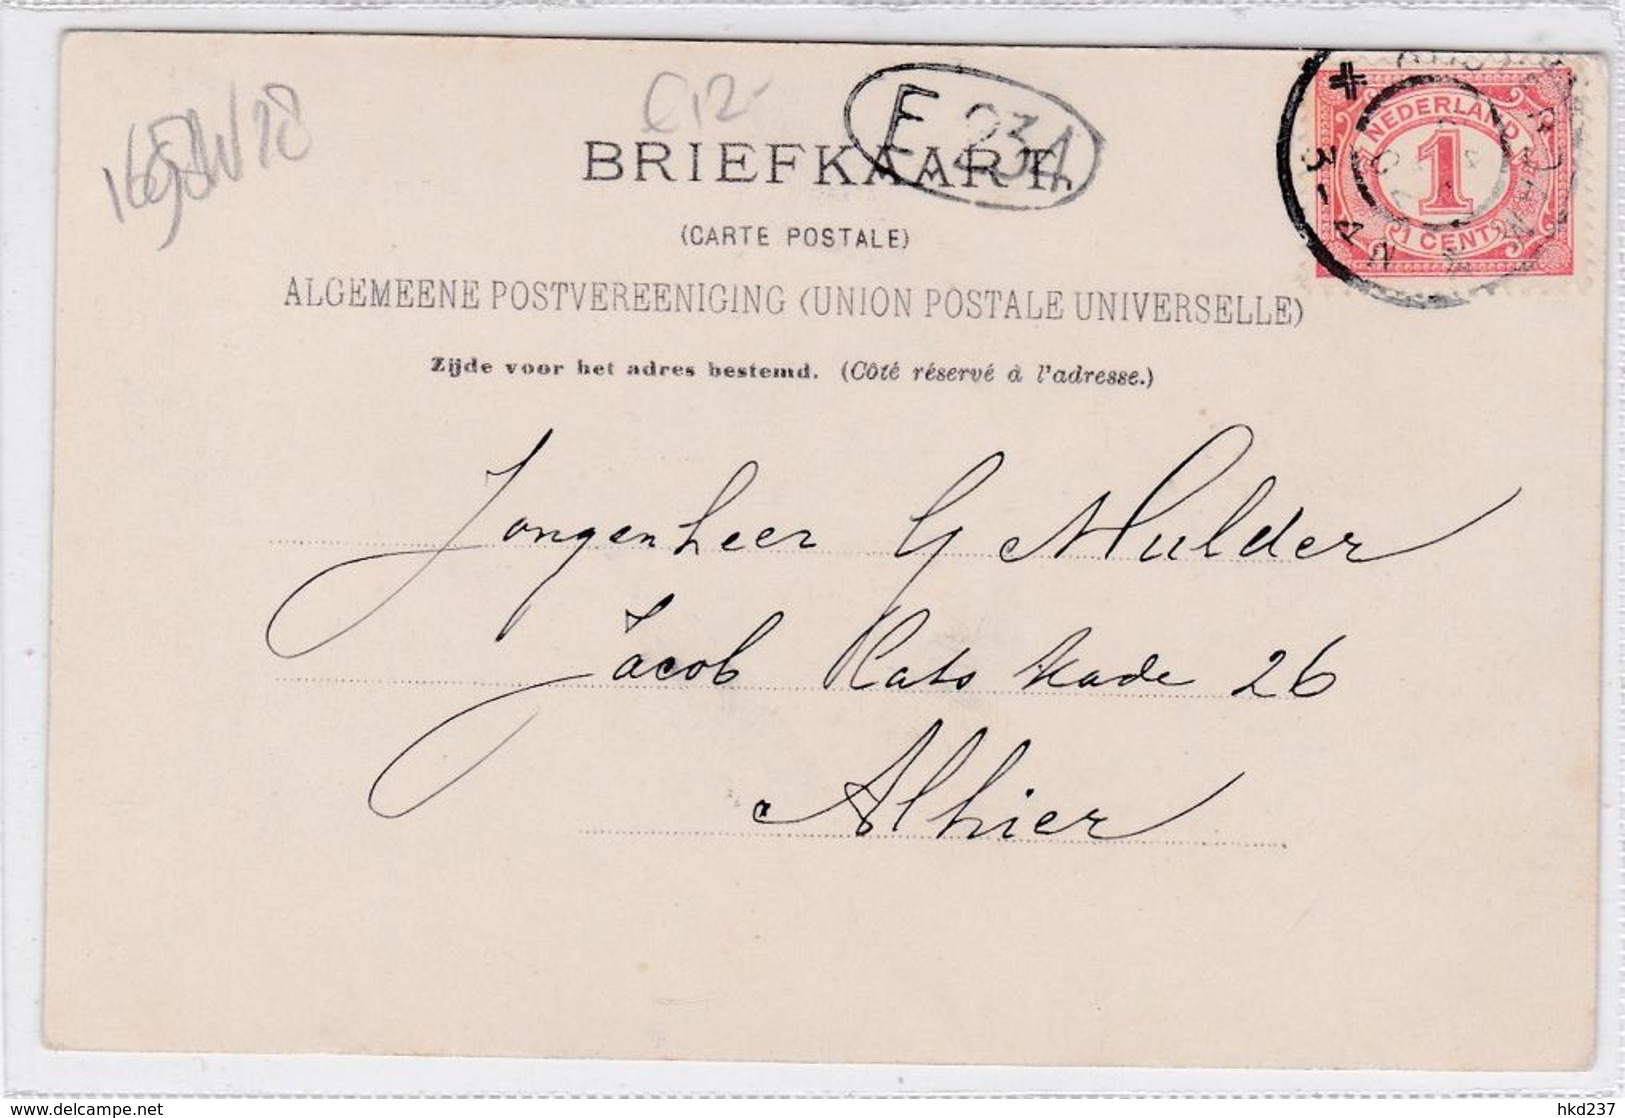 €12-
F 23A
BRIEFKAART.
(CARTE POSTALE)
ALGEMEENE POSTVEREENIGING (UNION POSTALE UNIVERSELLE)
Zijde voor het adres bestemd. (Côté réservé à l'adresse.)
NEDERLAND
1
1 CENT
3-4 N
Jongenheer G Mulder
Jacob Cats kade 26
Alhier
delcampe.net
hkd237